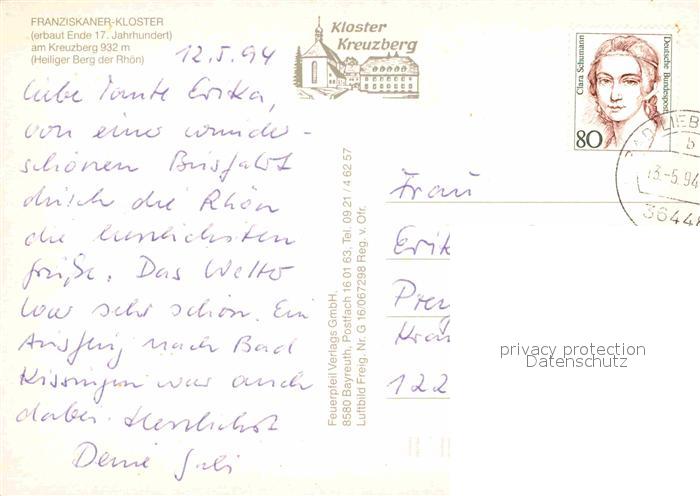 FRANZISKANER-KLOSTER
(erbaut Ende 17. Jahrhundert)
am Kreuzberg 932 m
(Heiliger Berg der Rhön)
Kloster
Kreuzberg
12.5.94
Liebe Tante Erika,
von einer wunder-
schönen Busfahrt
durch die Rhön
die herzlichsten
Grüße. Das Wetter
war sehr schön. Ein
Ausflug nach Bad
Kissingen war auch
dabei. Herzlichst
Deine
Feuerpfeil Verlags GmbH.
8580 Bayreuth, Postfach 16 01 63, Tel. 09 21 / 4 62 57
Luftbild Freig. Nr. G 16/067298 Reg. v. Ofr.
Clara Schumann
Deutsche Bundespost
80
BAD LIEBE
b
13.-5.94
36448
Frau
Erik
Krä
122
privacy protection
Datenschutz